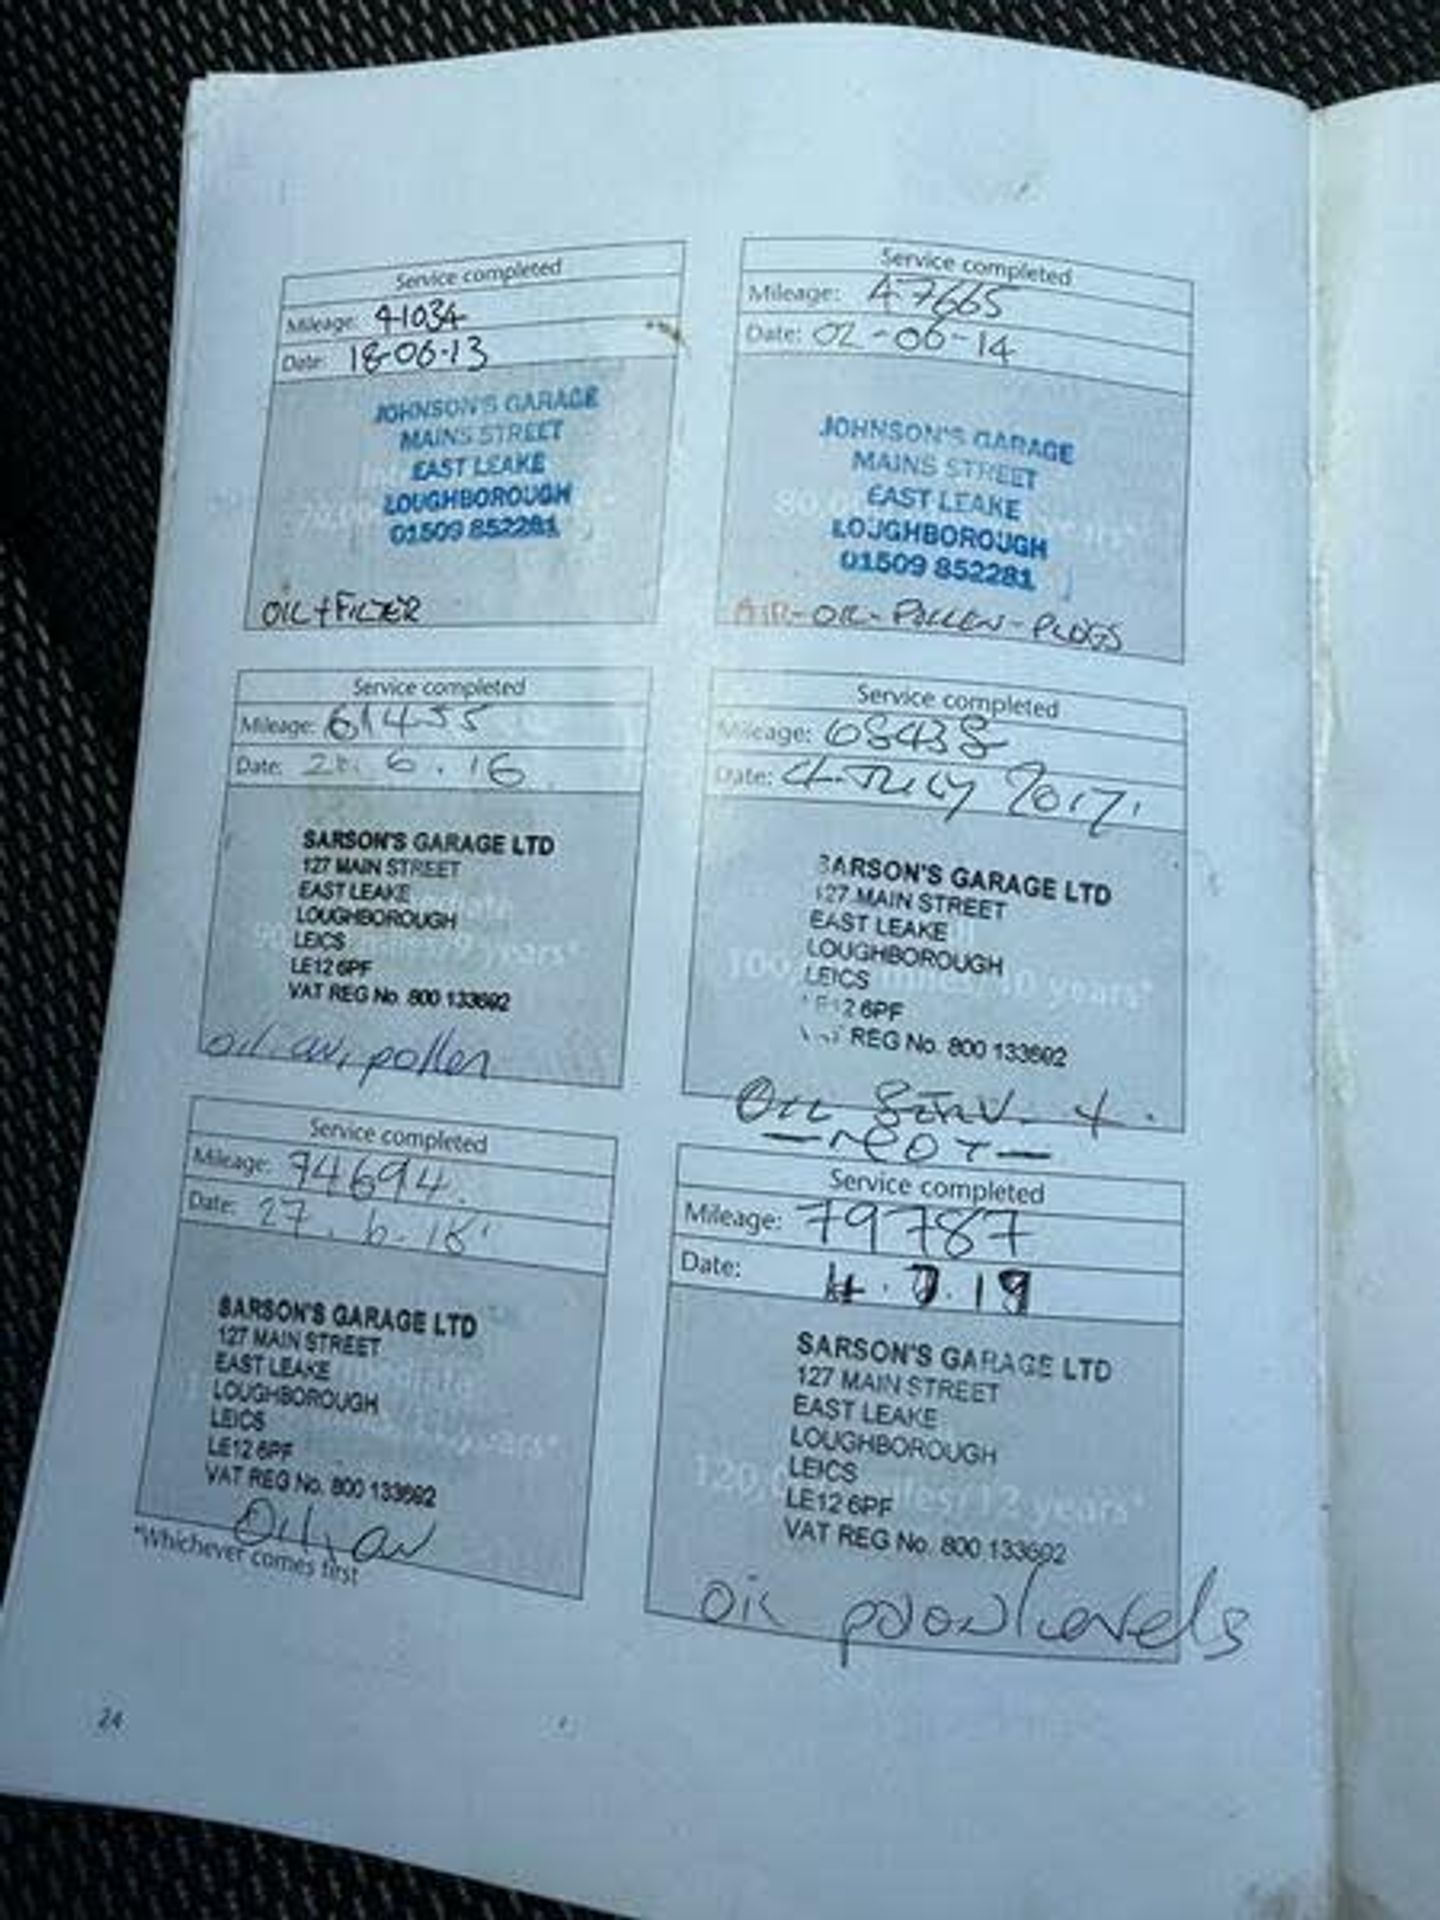 Service completed
Mileage: 41034
Date: 18-06-13
JOHNSON'S GARAGE
MAINS STREET
EAST LEAKE
LOUGHBOROUGH
01509 852281
OIL + FILTER
Service completed
Mileage: 47665
Date: 02-06-14
JOHNSON'S GARAGE
MAINS STREET
EAST LEAKE
LOUGHBOROUGH
01509 852281
AIR-OIL-POLLEN-PLUGS
Service completed
Mileage: 61455
Date: 6.16
SARSON'S GARAGE LTD
127 MAIN STREET
EAST LEAKE
LOUGHBOROUGH
LEICS
LE12 6PF
VAT REG No. 800 133692
oil, air, pollen
Service completed
Mileage: 68438
Date: 4 July 2017
SARSON'S GARAGE LTD
127 MAIN STREET
EAST LEAKE
LOUGHBOROUGH
LEICS
LE12 6PF
VAT REG No. 800 133692
100, miles/10 years*
OIL SERV. +
-MOT-
Service completed
Mileage: 74694
Date: 27.6.18
SARSON'S GARAGE LTD
127 MAIN STREET
EAST LEAKE
LOUGHBOROUGH
LEICS
LE12 6PF
VAT REG No. 800 133692
Oil, air
*Whichever comes first
Service completed
Mileage: 79787
Date: 4.7.19
SARSON'S GARAGE LTD
127 MAIN STREET
EAST LEAKE
LOUGHBOROUGH
LEICS
LE12 6PF
VAT REG No. 800 133692
120,0 miles/12 years*
oil levels
24